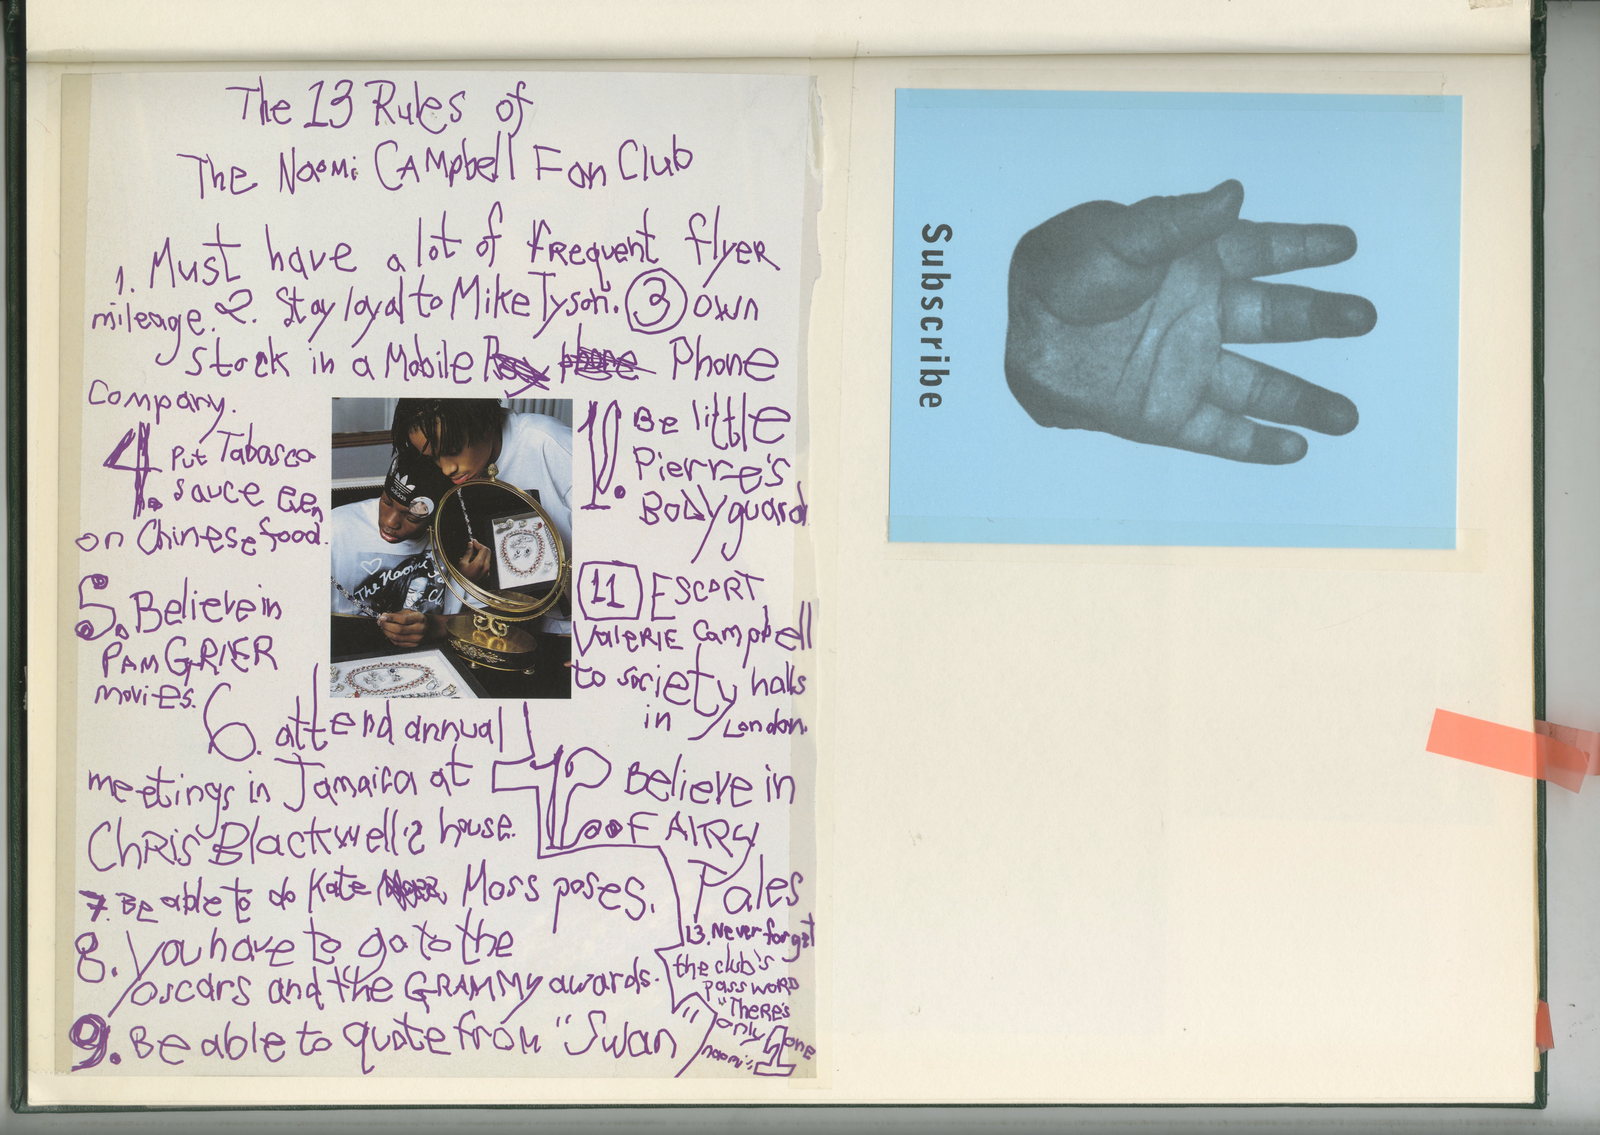 The 13 Rules of
The Naomi CAMpbell Fan Club
1. Must have a lot of frequent flyer
mileage. 2. Stay loyal to Mike Tyson. 3 own
stock in a Mobile Phone
Company.
4. Put Tabasco
sauce even
on Chinese food.
5. Believe in
PAM GRIER
movies.
6. attend annual
meetings in Jamaica at
Chris Blackwell's house.
7. Be able to do Kate Moss poses.
8. You have to go to the
Oscars and the GRAMMy awards.
9. Be able to quote from "Swan"
adidas
The Naomi
10. Be little
Pierre's
Bodyguard
11 ESCORT
Valerie Campbell
to society halls
in London.
12. Believe in
FAIRY
Tales
13. Never forget
the club's
password
"There's
only 1 one
naomi"
Subscribe